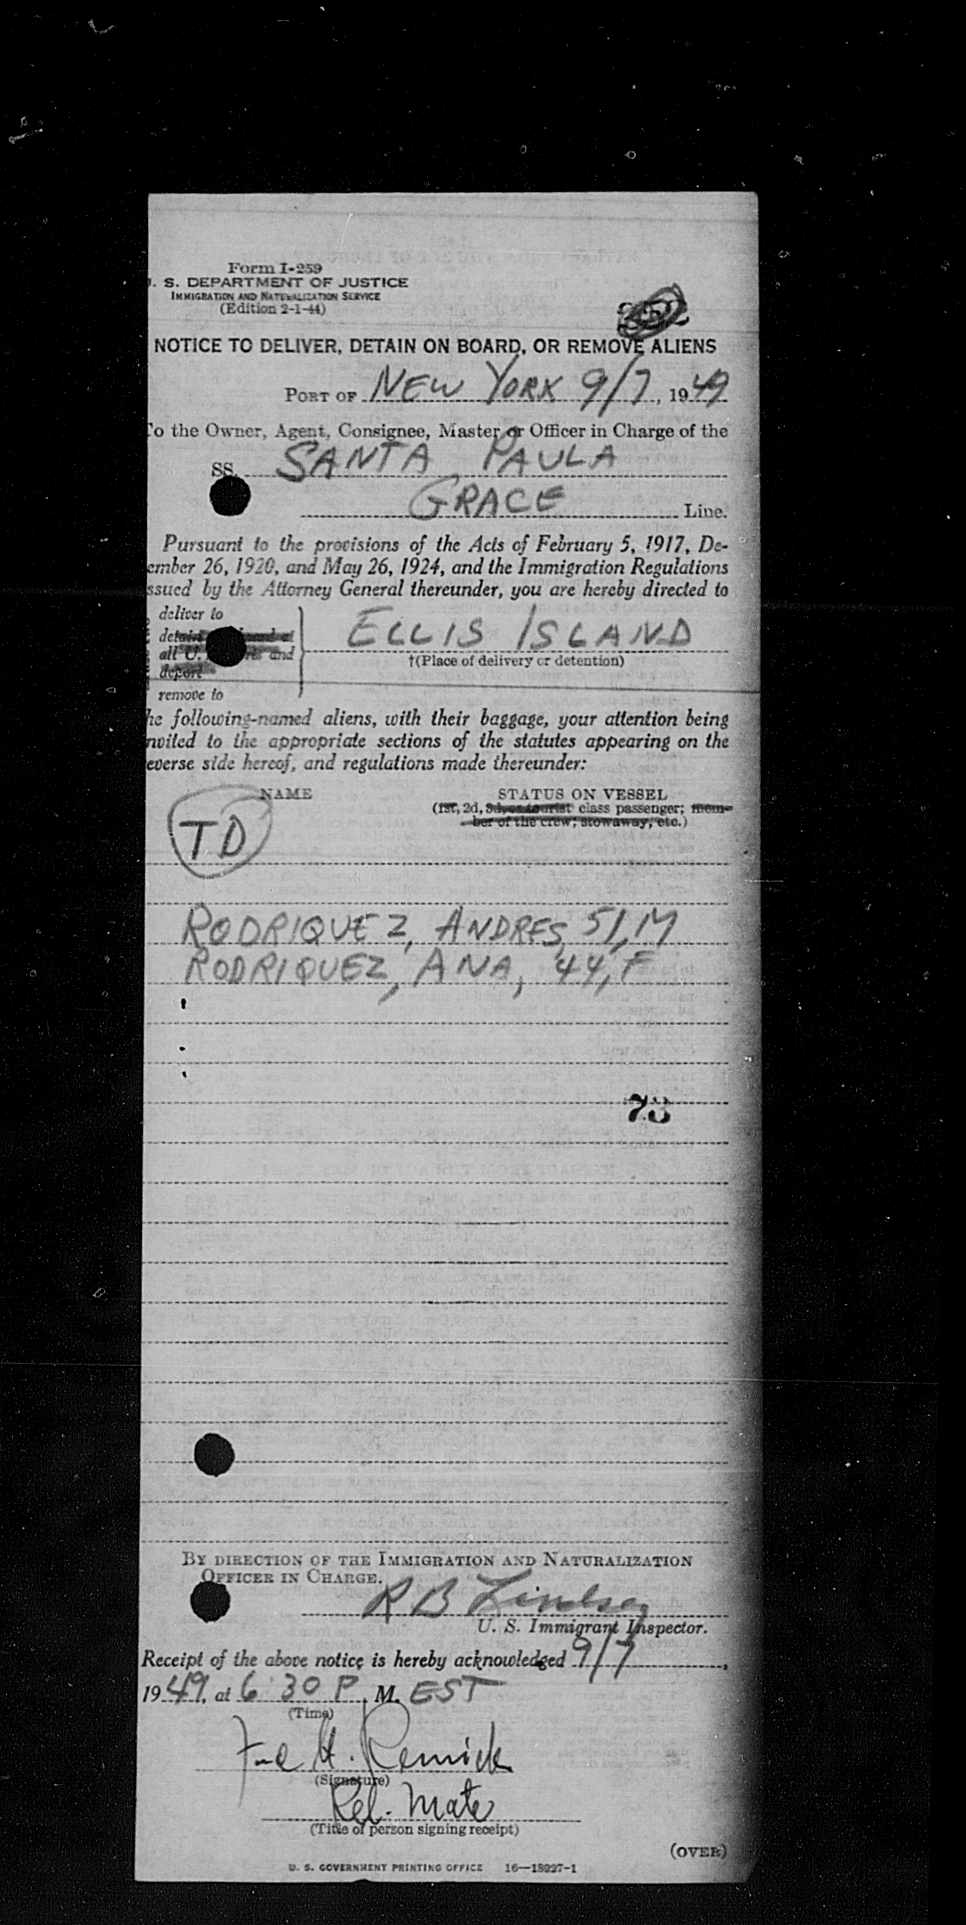 Form I-259
U. S. DEPARTMENT OF JUSTICE
IMMIGRATION AND NATURALIZATION SERVICE
(Edition 2-1-44)
NOTICE TO DELIVER, DETAIN ON BOARD, OR REMOVE ALIENS
PORT OF NEW YORK 9/7, 1949
To the Owner, Agent, Consignee, Master or Officer in Charge of the
SS. SANTA PAULA
GRACE Line.
Pursuant to the provisions of the Acts of February 5, 1917, De-
cember 26, 1920, and May 26, 1924, and the Immigration Regulations
issued by the Attorney General thereunder, you are hereby directed to
deliver to
detain board at
all U. and
deport
remove to
ELLIS ISLAND
†(Place of delivery or detention)
the following-named aliens, with their baggage, your attention being
invited to the appropriate sections of the statutes appearing on the
reverse side hereof, and regulations made thereunder:
NAME STATUS ON VESSEL
(1st, 2d, 3d, or tourist class passenger; mem-
ber of the crew; stowaway, etc.)
TD
RODRIQUEZ, ANDRES, 51, M
RODRIQUEZ, ANA, 44, F
73
BY DIRECTION OF THE IMMIGRATION AND NATURALIZATION
OFFICER IN CHARGE.
R B Lindsay
U. S. Immigrant Inspector.
Receipt of the above notice is hereby acknowledged 9/7,
1949, at 6:30 P. M. EST
(Time)
H. Remick
(Signature)
Rel. Mate
(Title of person signing receipt)
(OVER)
U. S. GOVERNMENT PRINTING OFFICE 16—18927-1